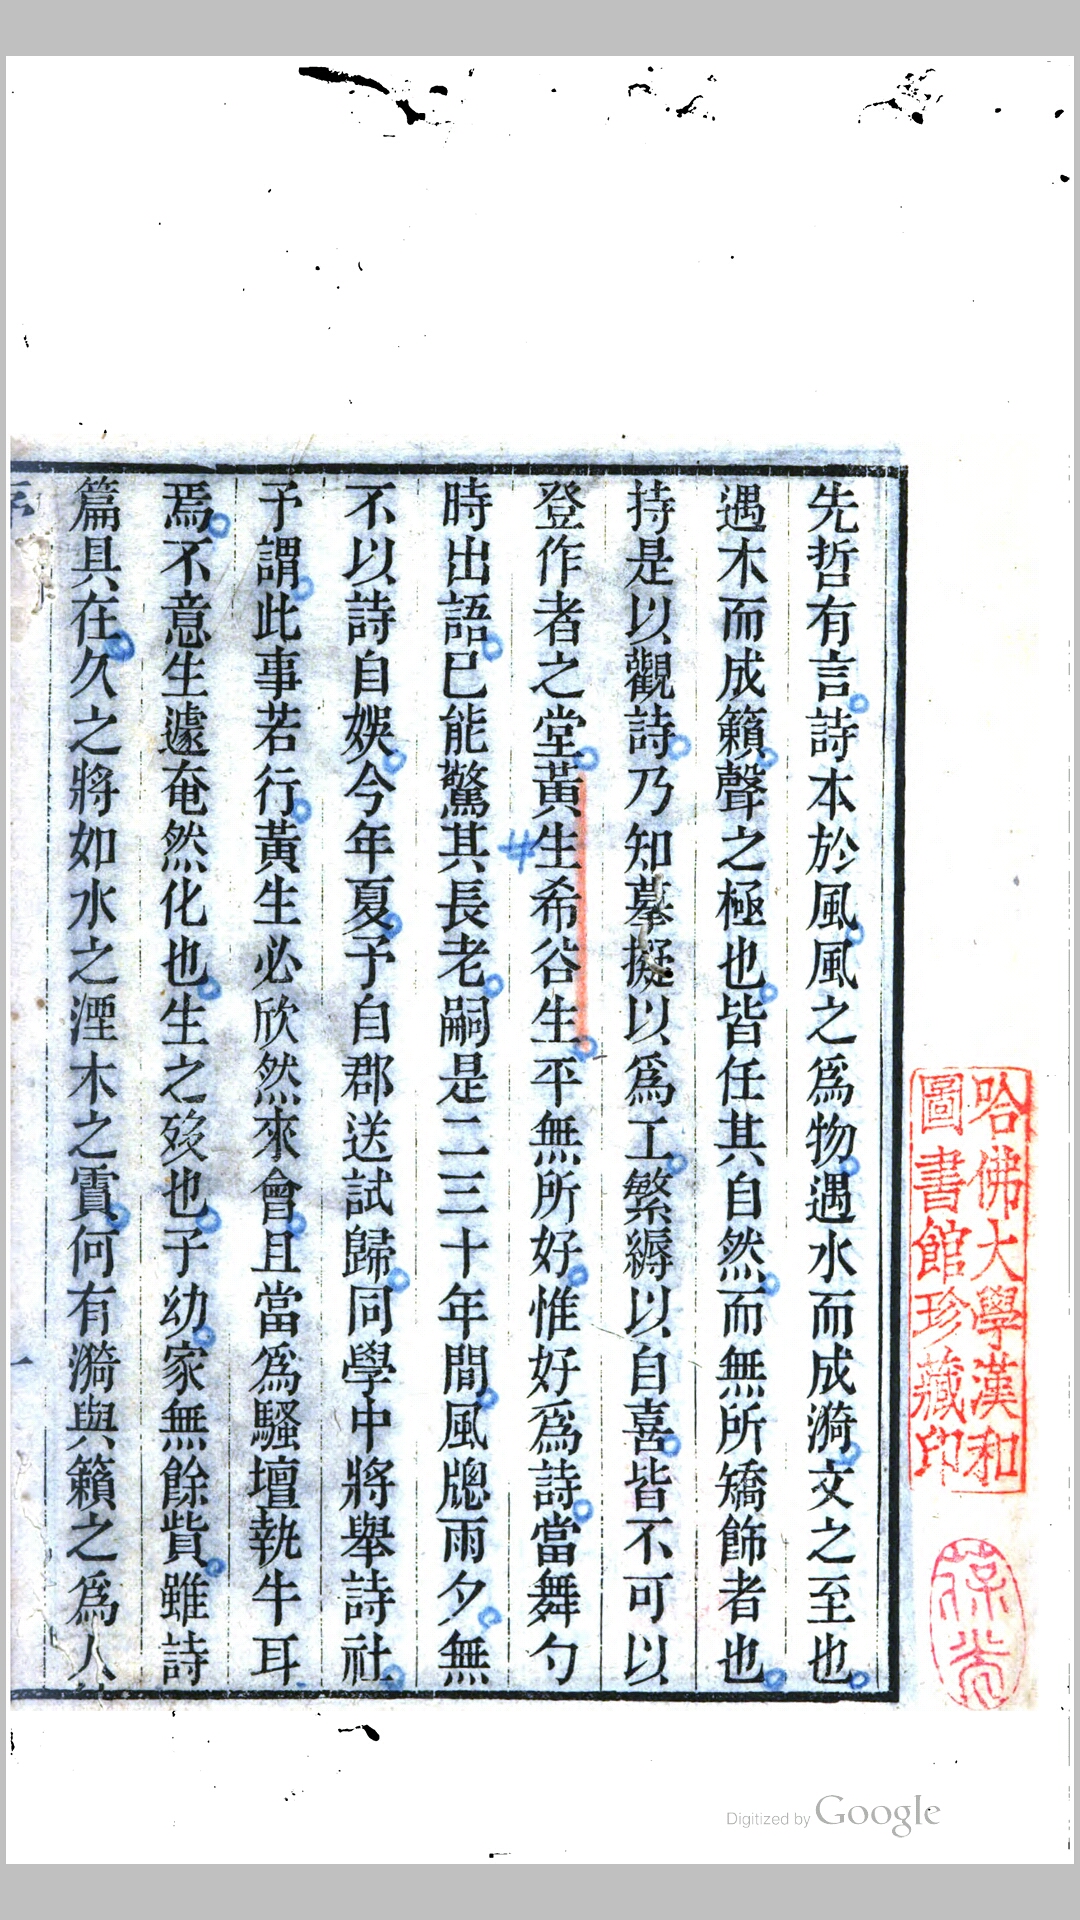 先哲有言詩本於風風之爲物遇水而成漪文之至也
遇木而成籟聲之極也皆任其自然而無所矯飾者也
持是以觀詩乃知摹擬以爲工繁縟以自喜皆不可以
登作者之堂黃生希谷生平無所好惟好爲詩當舞勺
時出語已能驚其長老嗣是二三十年間風牕雨夕無
不以詩自娛今年夏予自郡送試歸同學中將舉詩社
予謂此事若行黃生必欣然來會且當爲騷壇執牛耳
焉不意生遽奄然化也生之歿也子幼家無餘貲雖詩
篇具在久之將如水之湮木之霣何有漪與籟之爲人
序
一
哈佛大學漢和
圖書館珍藏印
Digitized by Google